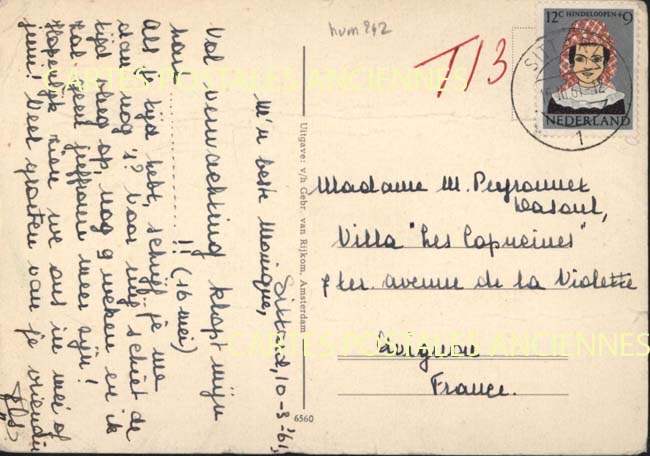 hvm 842
T13
12c HINDELOOPEN +9
NEDERLAND
SITT
61
1
CARTES POSTALES ANCIENNES
Sittard, 10-3-'61,
M'n beste Monique,
Vol verwachting klopt mijn
hart ........ !! (16 mei)
Als je tijd hebt, schrijf je me
dan nog 's? Voor mij schiet de
tijd vlug op, nog 9 weken en ik
zal geen juffrouw meer zijn!
Hopelijk zien we ons in mei of
juni! Veel groeten van je vriendin
Uitgave: v/h Gebr. van Rijkom, Amsterdam
6560
Madame M. Peyronnet
Villa "Les Capucines"
7 ter. avenue de la Violette
Avignon
France.
CARTES POSTALES ANCIENNES